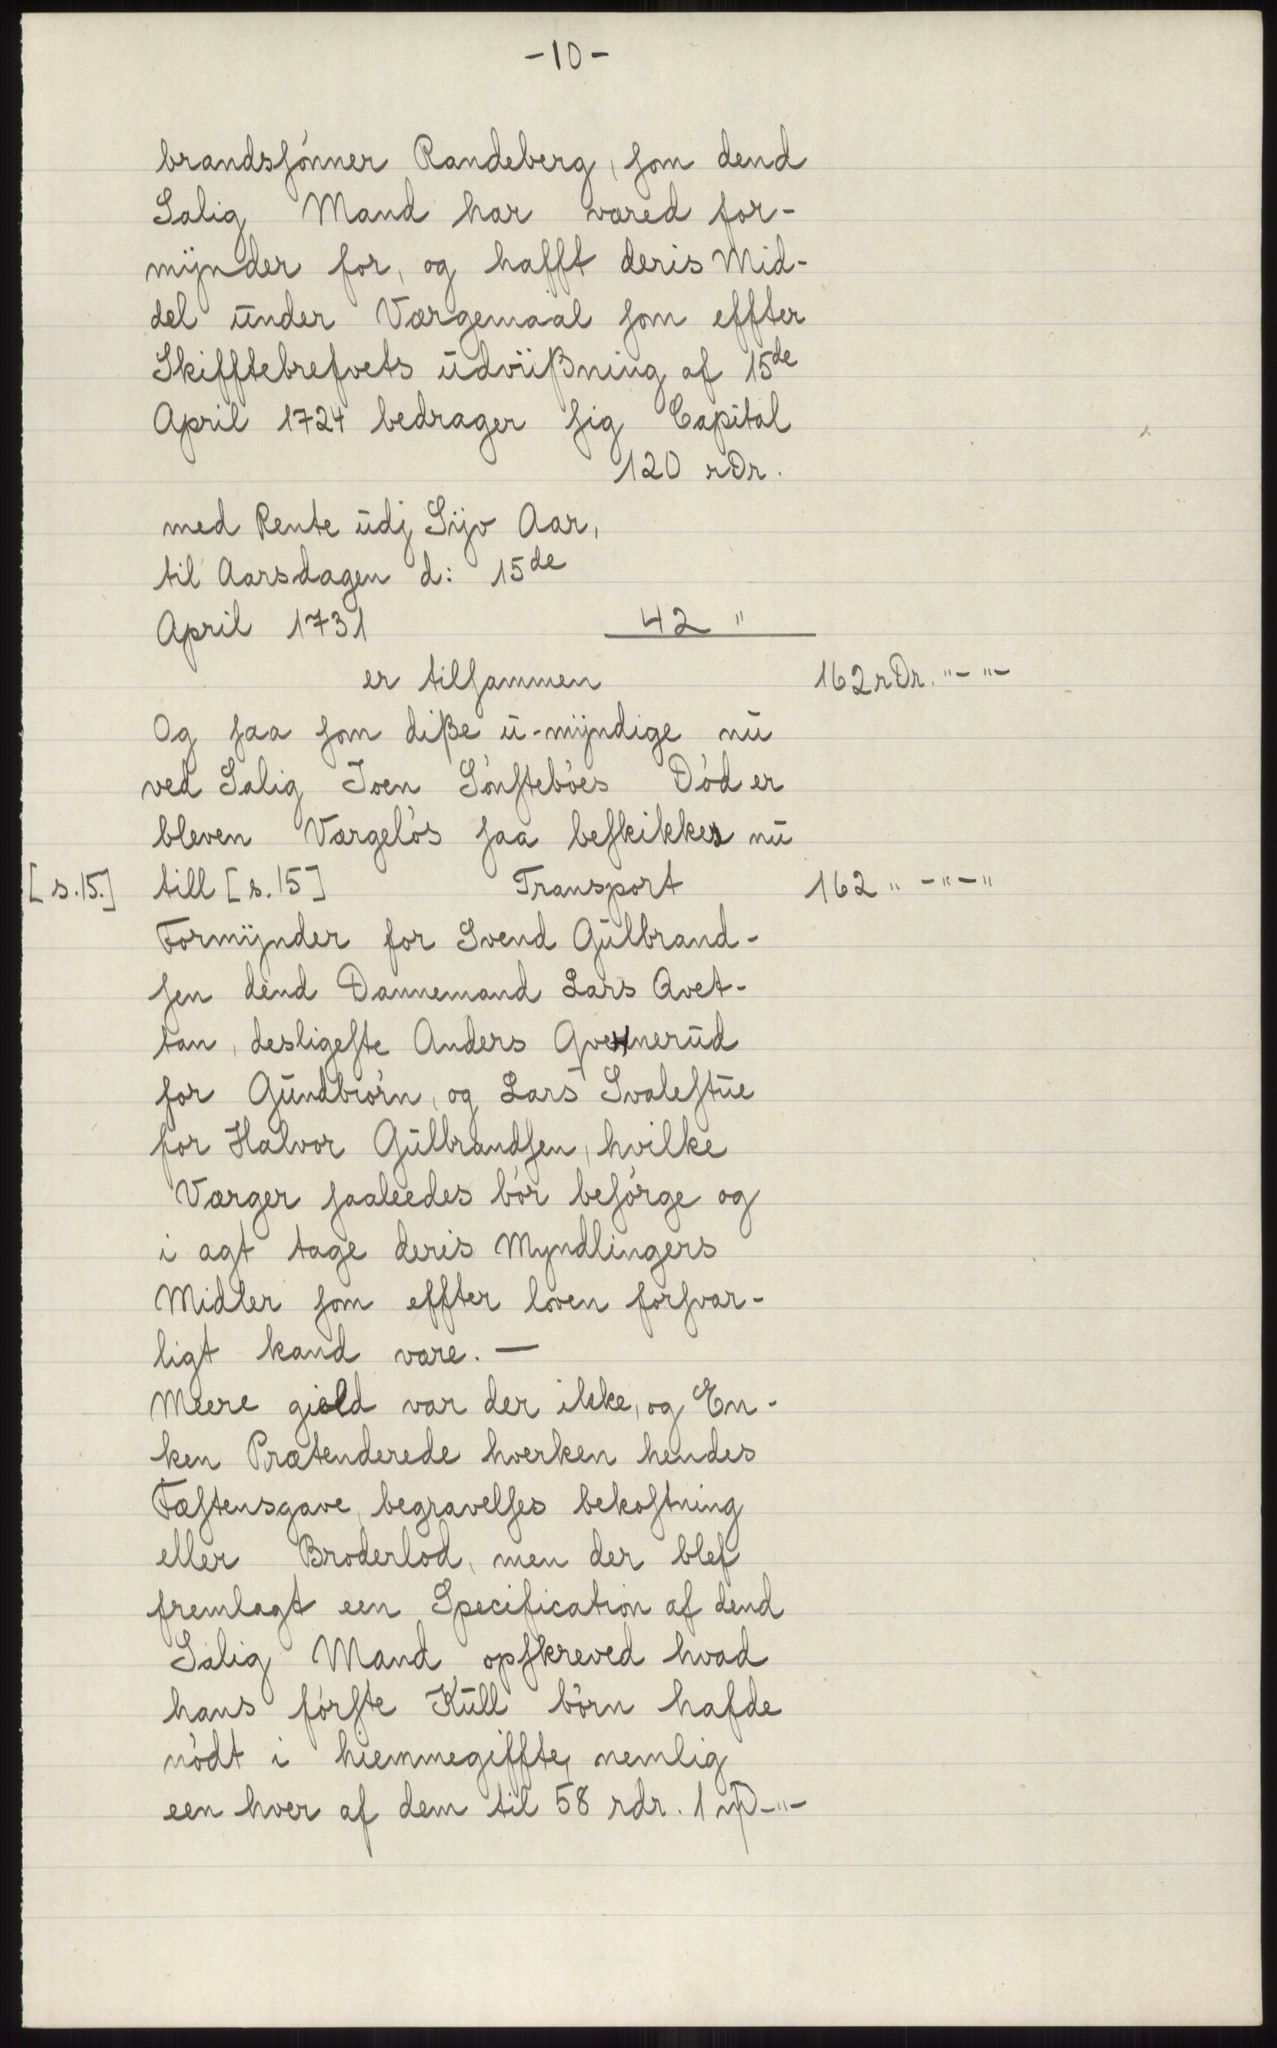 -10-
brandsſónner Randeberg, ſom dend
Salig Mand har vared for-
mÿnder for, og hafft deris Mid-
del ūnder Værgemaal ſom effter
Skifftebrefvets ūdviißning af 15de
April 1724 bedrager ſig Capital
120 rDr.
med Rente ūdj Sÿv Aar,
til Aarsdagen d: 15de
April 1731 42 "
er tilſammen 162 rDr. "- "-
Og ſaa ſom diße ū-mÿndige nū
ved Salig Joen Sónſtebóes Dód er
bleven Værgelós ſaa beſkikkes nū
[s.15.] till [s.15] Transport 162 " -"-"
Formÿnder for Svend Gūlbrand-
ſen dend Dannemand Lars Qvet-
tan, desligeſte Anders Qvernerūd
for Gūndbiórn, og Lars Svaleſtūe
for Halvor Gūlbrandſen, hvilke
Værger ſaaleedes bór beſórge og
i agt tage deris Myndlingers
Midler ſom effter loven forſvar-
ligt kand være. —
Meere gield var der ikke, og En-
ken Prætenderede hverken hendes
Fæſtensgave, begravelſes bekoſtning
eller Broderlod, men der blef
fremlagt een Specification af dend
Salig Mand opſkreved hvad
hans fórſte Kūll bórn hafde
nódt i hiemmegiffte, nemlig
een hver af dem til 58 rdr. 1 mƿ-"-